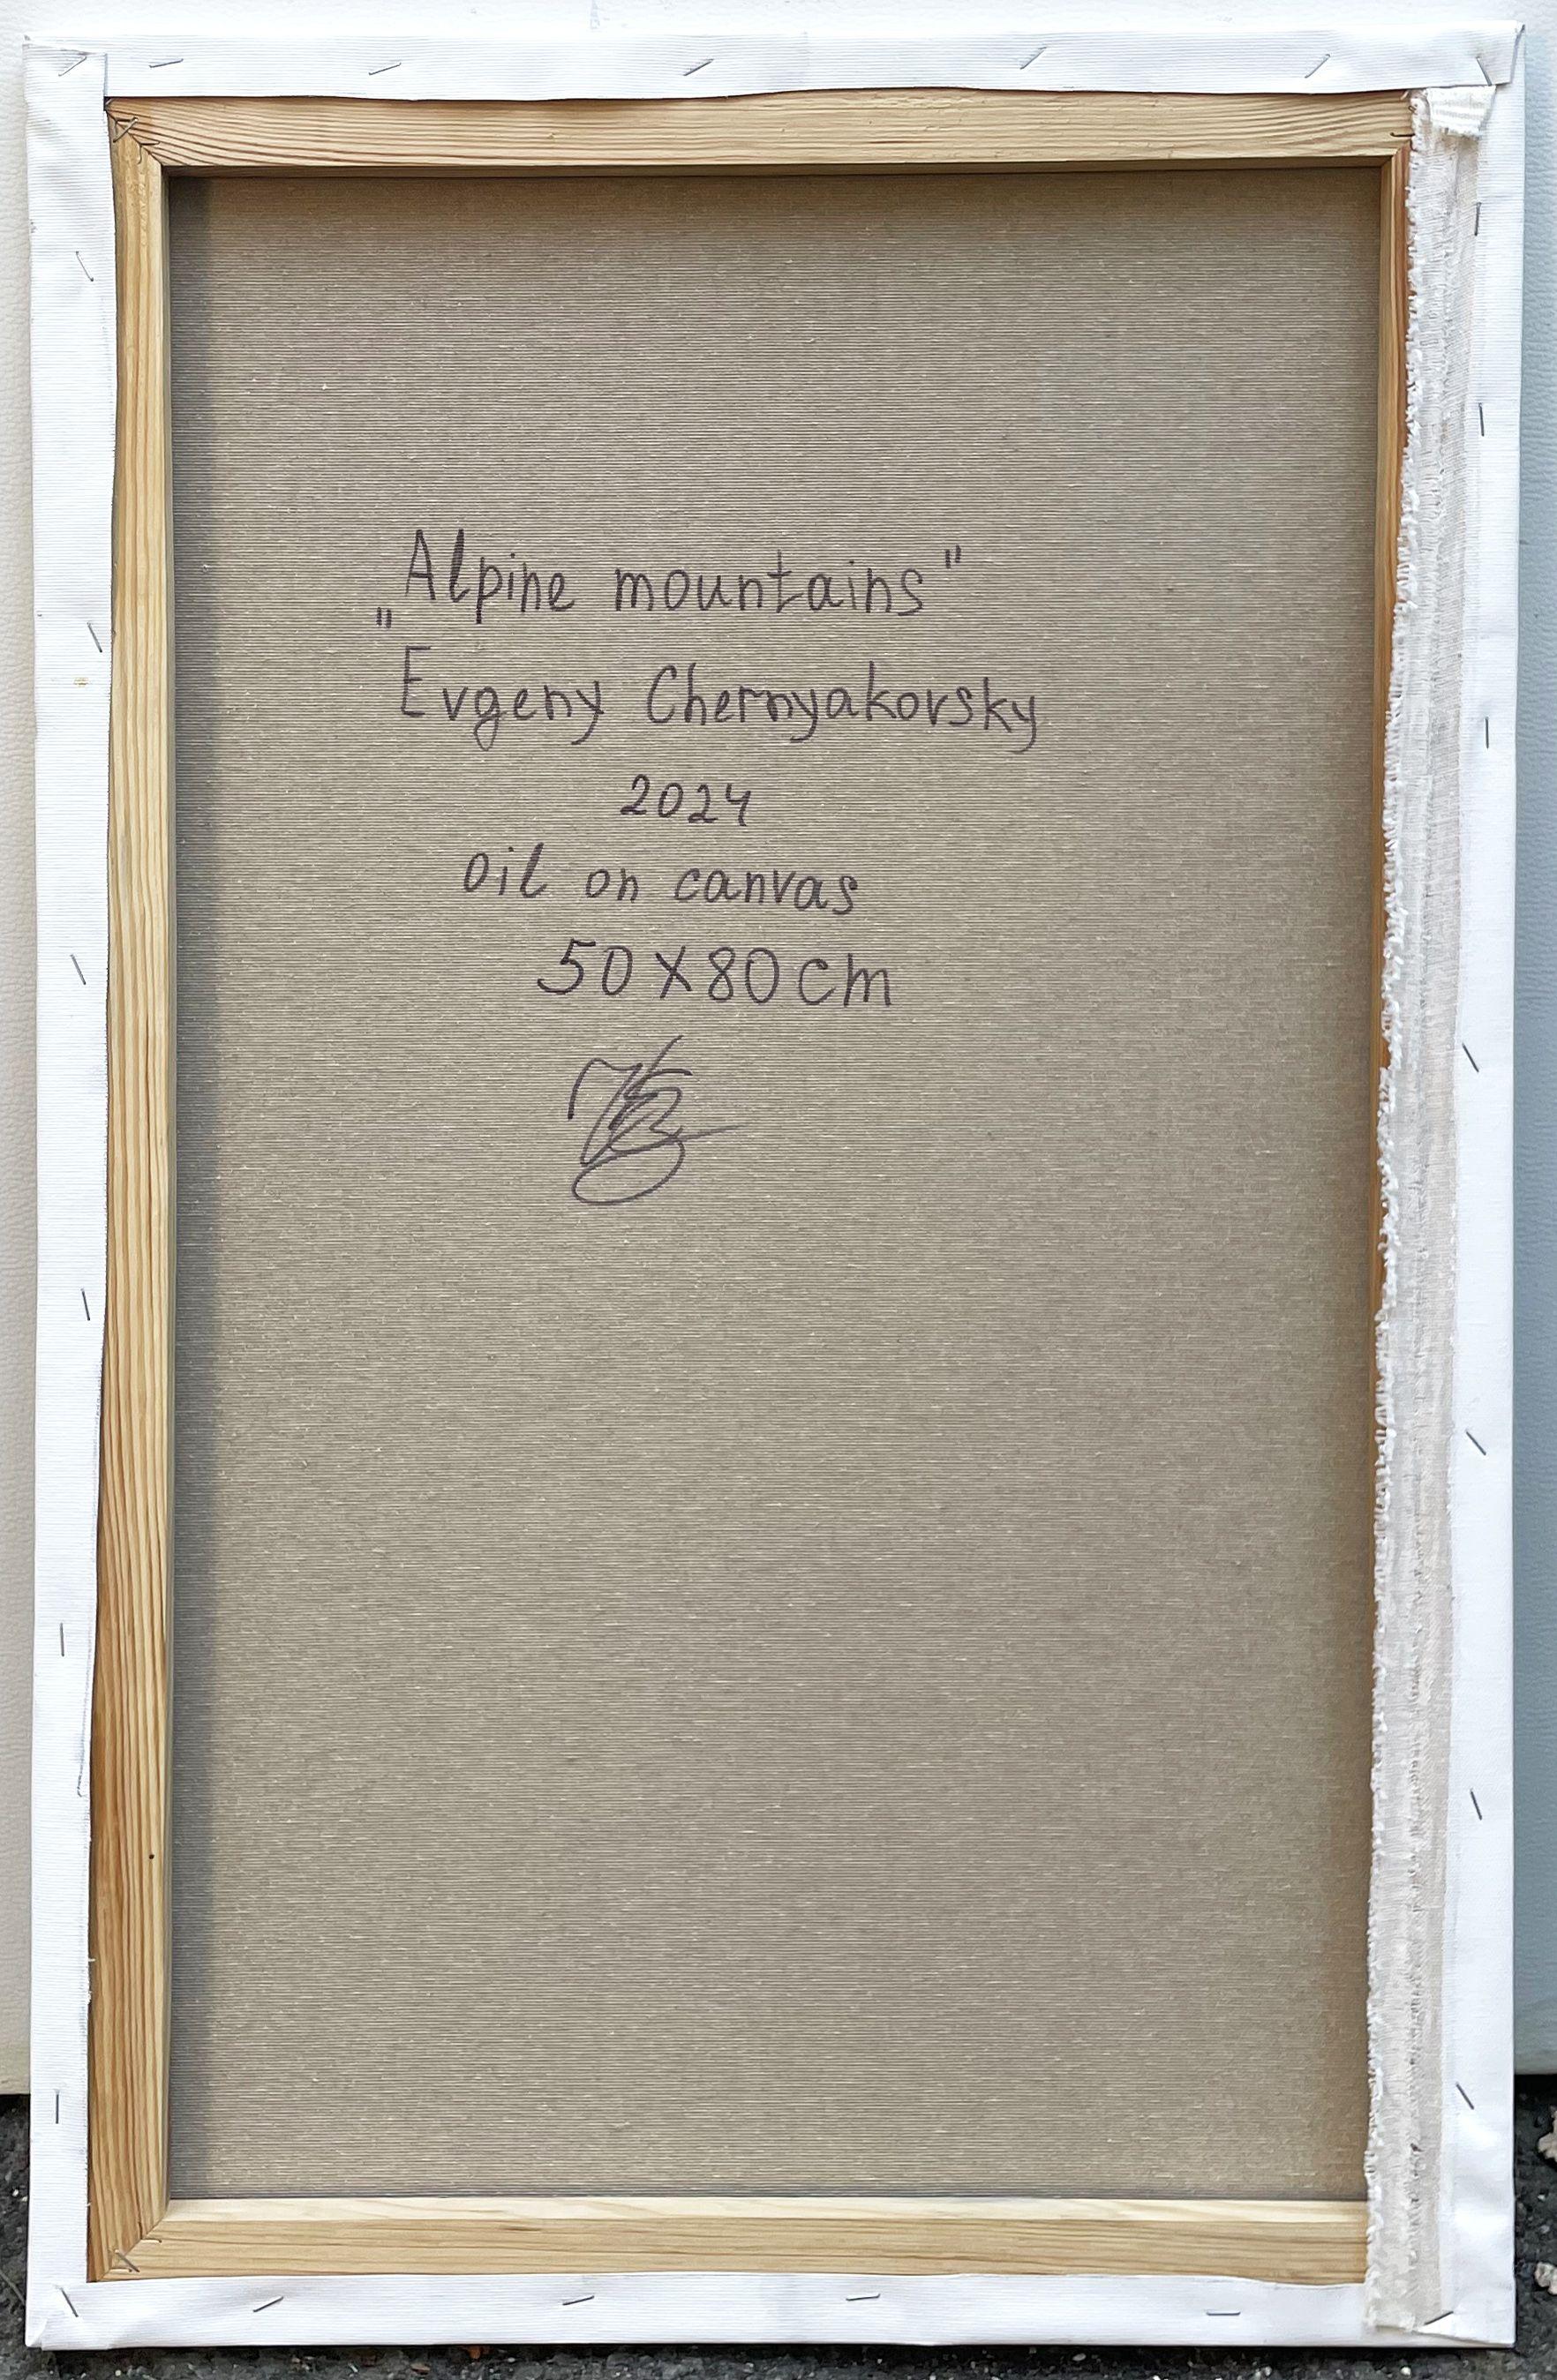 „Alpine mountains"
Evgeny Chernyakovsky
2024
oil on canvas
50x80cm